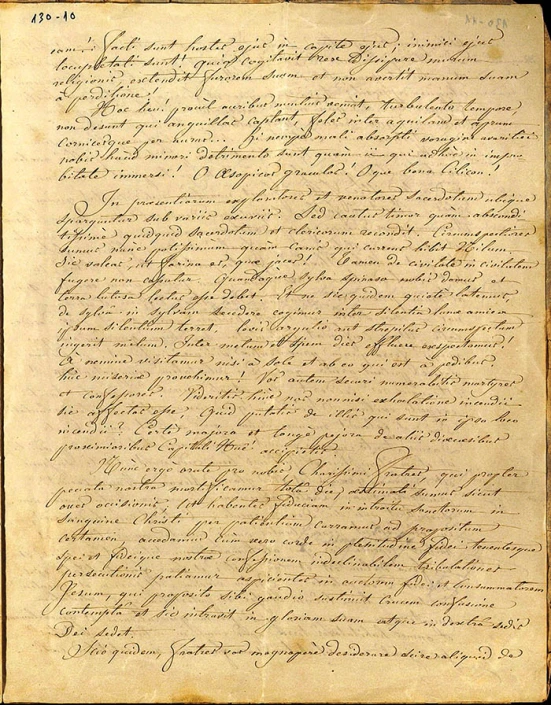 130-10
eam! Facti sunt hostes ejus in capite ejus; inimici ejus
locupletati sunt! quia cogitavit vere dissipare murum
religionis, extendit furorem suum et non avertit manum suam
a perditione!
Hoc heu! procul acribus multus venit, turbulento tempore
non desunt qui anguillas captant, feles inter aquilam et aprum
Cornicesque per nunc... Si nempe mali absorpti voragine avaritiæ
nobis haud minori detrimento sunt quàm ii qui adhuc in impro
bitate immersi! O Æsopicos graculos! O que bona Cilicon!
In præsentiarum exploratores et venatores sacerdotum ubique
sparguntur sub variis exuviis. Sed cautus timor quàm abscondi
tissimè quidquid sacerdotum et clericorum recondit. Circumspectiores
sumus nunc potissimum quam canis qui currens bibit Nilum.
Sic valeas, ut farina es, quæ jaces! Tamen de civitate in civitatem
fugere non capimur. Quandoque sylva spinosa nobis domus et
terra lutosa lectus esse debet. Et ne sic quidem quietè latemus,
de sylvâ in sylvam secedere cogimur inter silentia lunæ amica
ipsum silentium terret, levis argutio aut strepitus circumspectum
ingerit metum. Inter metum et spem dies effluere exspectamus!
A nemine visitamur nisi à sole et ab eo qui est à pedibus
huc miseriæ provehimur! Vos autem securi numerabitis martyres
et confessores. Videntis hinc vos nonnisi exhalatione incendii
sic affectos esse, Quid putatis de illis qui sunt in ipso loco
incendii? Certè majora et longè pejora de aliis diœcesibus
proximioribus Capitali Huê accipietis.
Nunc ergò orate pro nobis Charissimi Fratres, qui propter
peccata nostra mortificamur totâ die, æstimati sumus sicut
oves occisionis, Ut habentes fiduciam in introitu sanctorum in
sanguine Christi per patientiam curramus ad propositum
certamen, accedamus cum vero corde in plenitudine fidei teneamusque
spei et fideique nostræ confessionem indeclinabilem tribulationes
persecutionis patiamur aspicientes in auctorem fidei et consummatorem
Jesum, qui proposito sibi gaudio sustinuit crucem confusione
contemptâ et sic intravit in gloriam suam atque in dextrâ sedis
Dei sedet.
Scio quidem, Fratres vos magnoperè desiderare scire aliquid de